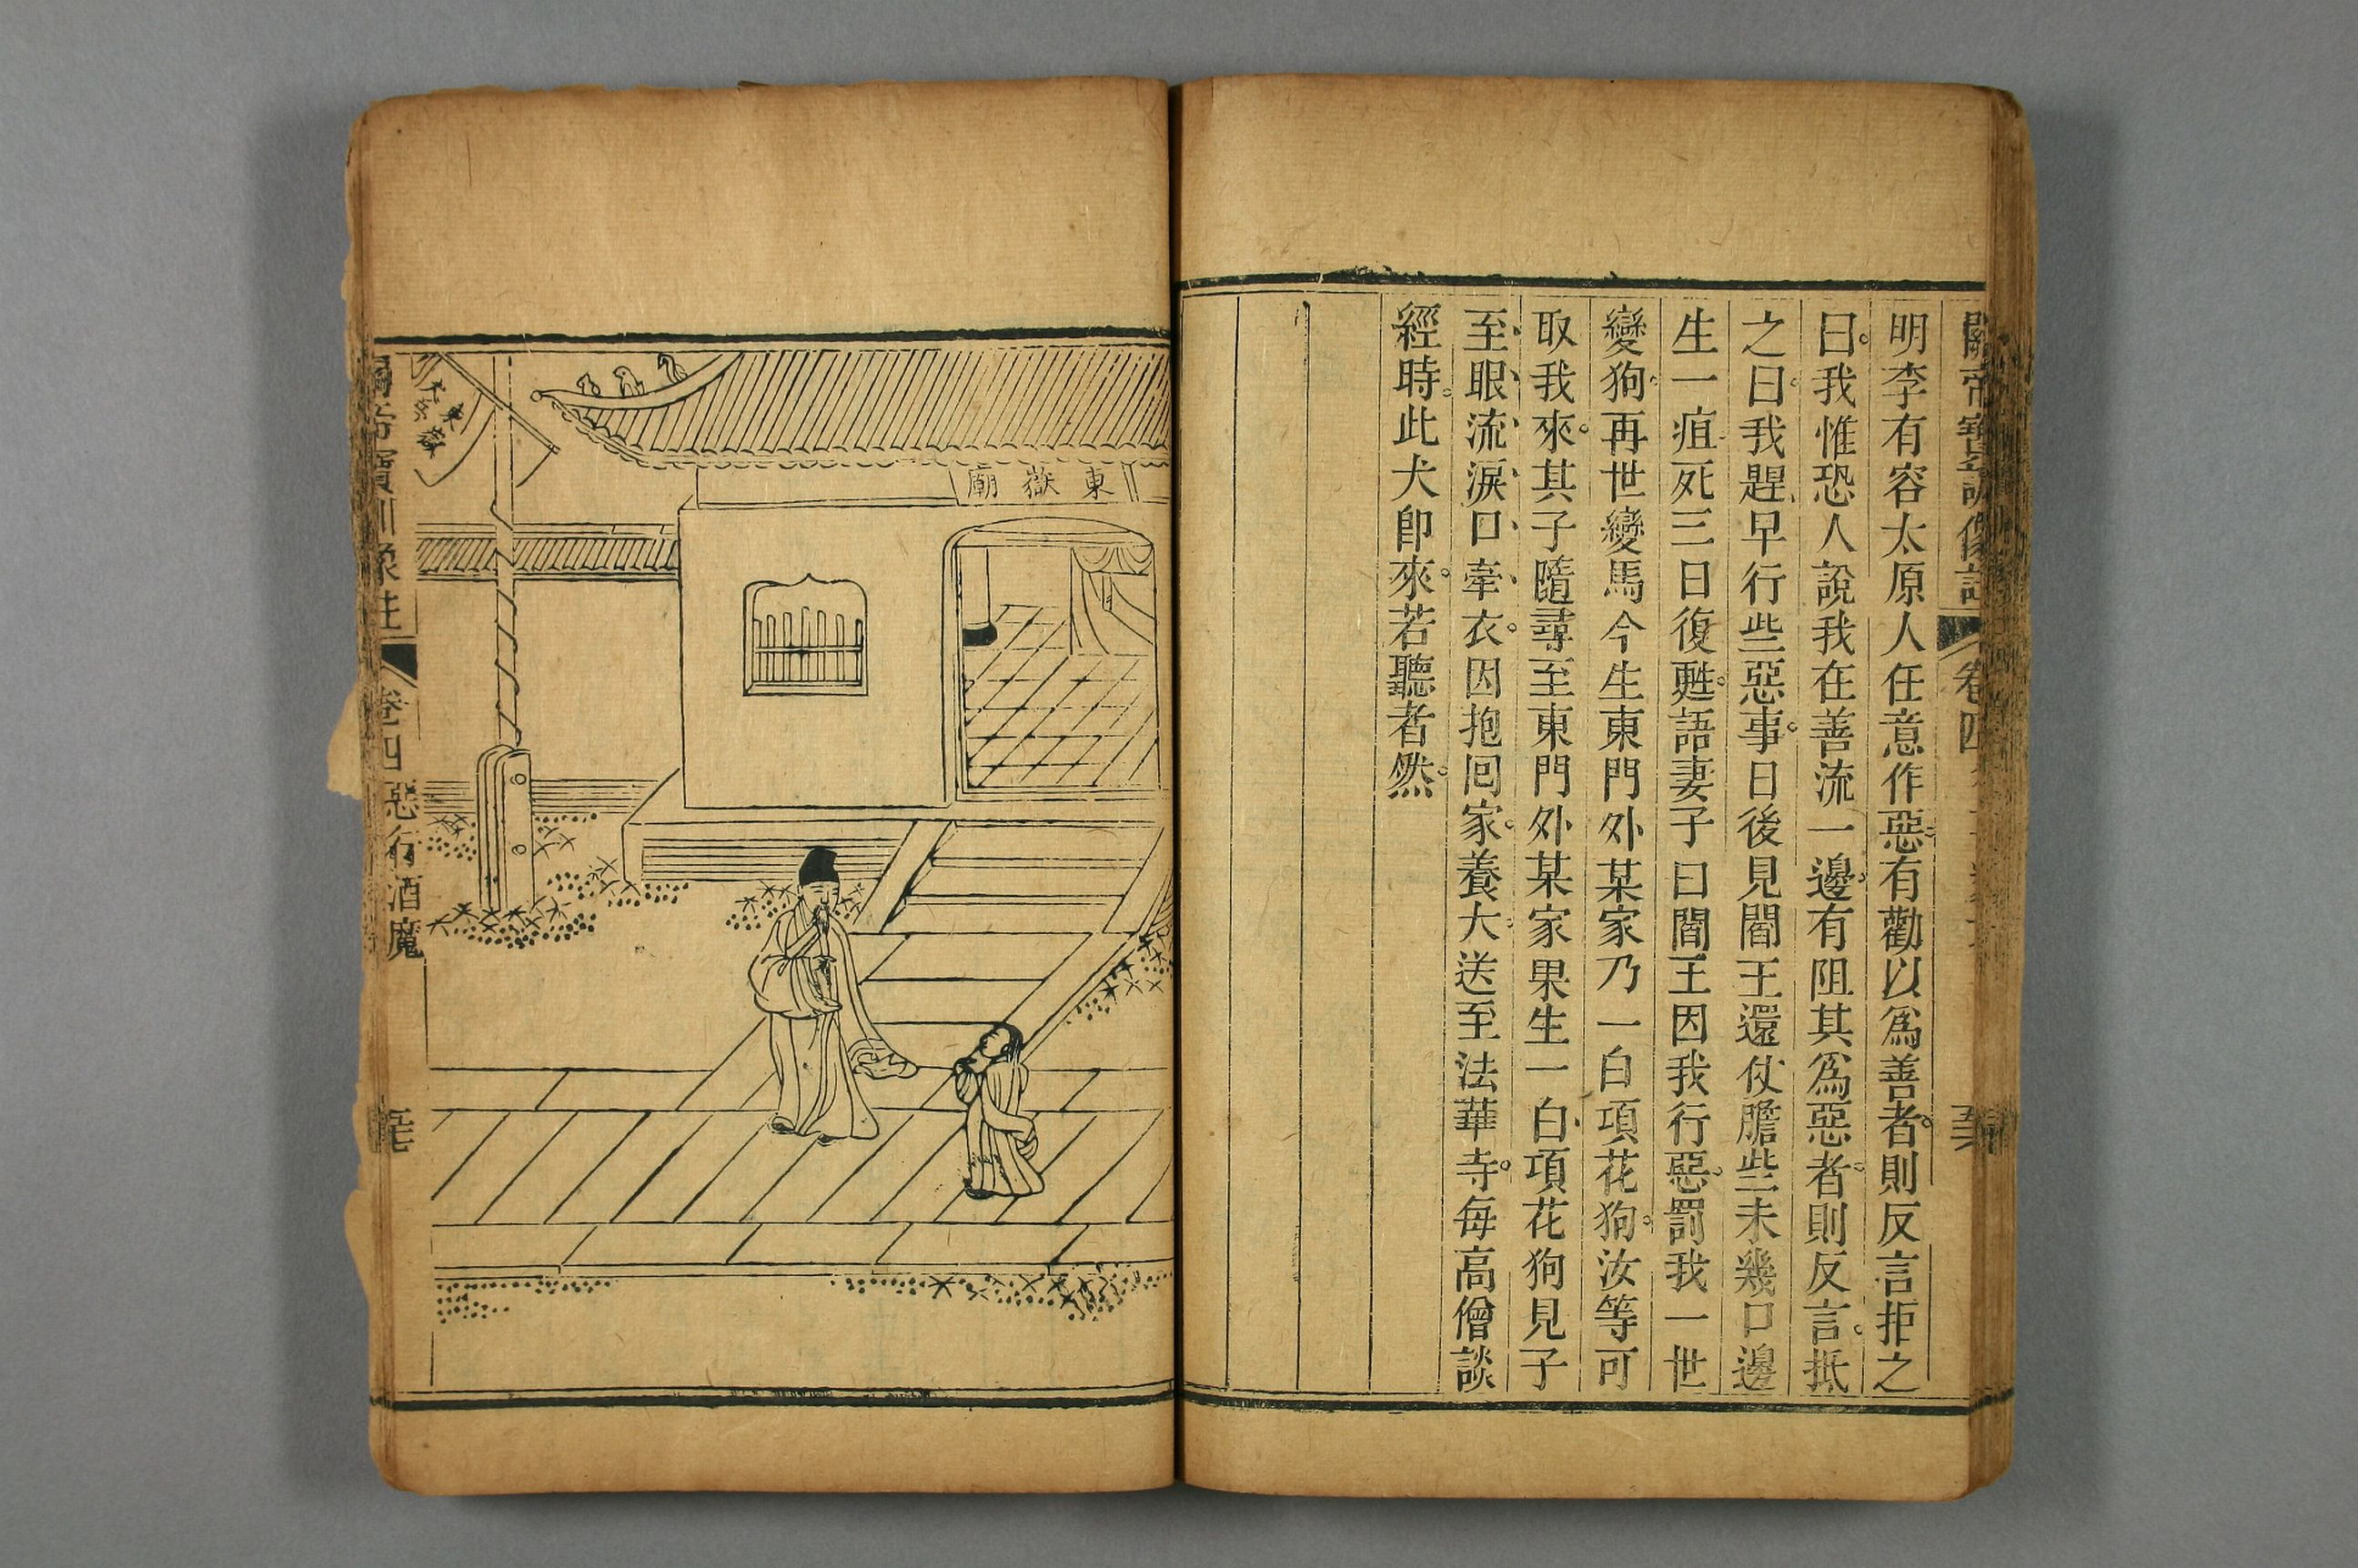 關帝寶訓像註 卷四
明李有容太原人任意作惡有勸以爲善者則反言拒之
曰我惟恐人說我在善流一邊有阻其爲惡者則反言抵
之曰我趕早行些惡事日後見閻王還仗膽些未幾口邊
生一疽死三日復甦語妻子曰閻王因我行惡罰我一世
變狗再世變馬今生東門外某家乃一白項花狗汝等可
取我來其子隨尋至東門外某家果生一白項花狗見子
至眼流淚口牽衣因抱回家養大送至法華寺每高僧談
經時此犬卽來若聽者然
東嶽廟
東嶽
關帝寶訓像註 卷四 惡行酒魔